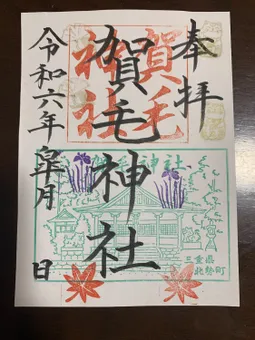 奉拝
賀毛神社
賀毛
神社
令和六年皐月 日
賀毛神社
三重県
北勢町